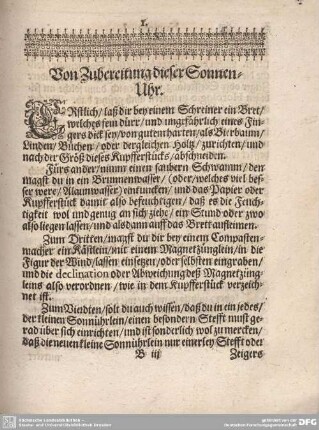 1.
Von Zubereitung dieser Sonnen-
Uhr.
ERstlich/ laß dir bey einem Schreiner ein Bret/
welches fein dürr/ und ungefährlich eines Fin-
gers dick sey/ von gutem harten/ als Birbaum/
Linden/ Büchen/ oder dergleichen Holtz/ zurichten/ und
nach der Größ dieses Kupfferstücks/ abschneiden.
Fürs ander/ nimm einen saubern Schwamm/ den
magst du in ein Brunnenwasser/ (oder/ welches viel bes-
ser were/ Alaunwasser) eintuncken/ und das Papier oder
Kupfferstück damit also befeuchtigen/ daß es die Feuch-
tigkeit wol und genug an sich ziehe/ ein Stund oder zwo
also liegen lassen/ und alsdann auff das Bret aufleimen.
Zum Dritten/ magst du dir bey einem Compasten-
macher ein Kästlein/ mit einem Magnetzünglein/ in die
Figur der Wind/ lassen einsetzen/ oder selbsten eingraben/
und die declination oder Abweichung deß Magnetzüng-
leins also verordnen/ wie in dem Kupfferstück verzeich-
net ist.
Zum Vierdten/ solt du auch wissen/ daß du in ein jedes/
der kleinen Sonnührlein/ einen besondern Stefft must ge-
rad über sich einrichten/ und ist sonderlich wol zu mercken/
daß die neuen kleine Sonnührlein nur einerley Stefft oder
B iij Zeigers